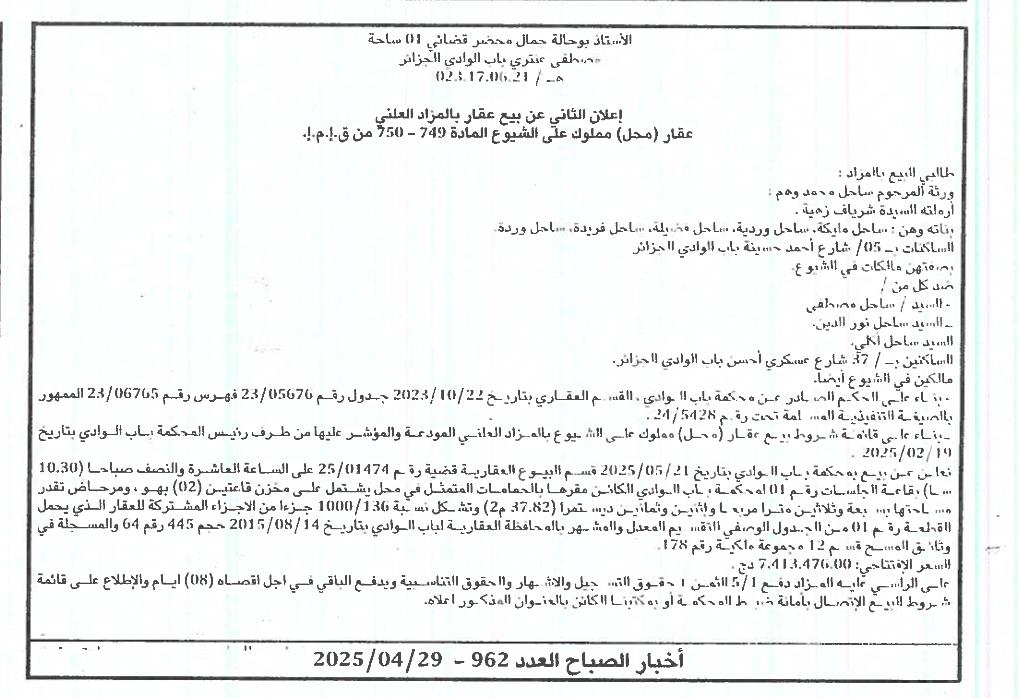 الأستاذ بوحالة جمال محضر قضائي 01 ساحة
مصطفى عنتري باب الوادي الجزائر
هـ / 023.17.06.21
إعلان الثاني عن بيع عقار بالمزاد العلني
عقار (محل) مملوك على الشيوع المادة 749 – 750 من ق.إ.م.إ.
طالبي البيع بالمزاد :
ورثة المرحوم ساحل محمد وهم :
أرملته السيدة شرياف زهية .
بناته وهن : ساحل مايكة، ساحل وردية، ساحل فضيلة، ساحل فريدة، ساحل وردة.
الساكنات بـ 05/ شارع أحمد حسينة باب الوادي الجزائر
بصفتهن مالكات في الشيوع.
ضد كل من /
- السيد / ساحل مصطفى
- السيد ساحل نور الدين.
السيد ساحل أكلي.
الساكنين بـ / 37 شارع عسكري أحسن باب الوادي الجزائر.
مالكين في الشيوع أيضا.
- بناء على الحكم الصادر عن محكمة باب الوادي ، القسم العقاري بتاريخ 2023/10/22 جدول رقم 23/05676 فهرس رقم 23/06765 الممهور
بالصيغة التنفيذية المسلمة تحت رقم 24/5428.
- بناء على قائمة شروط بيع عقار (محل) مملوك على الشيوع بالمزاد العلني المودعة والمؤشر عليها من طرف رئيس المحكمة باب الوادي بتاريخ
2025/02/19 .
نعلن عن بيع بمحكمة باب الوادي بتاريخ 2025/05/21 قسم البيوع العقارية قضية رقم 25/01474 على الساعة العاشرة والنصف صباحا (10.30
سا) بقاعة الجلسات رقم 01 لمحكمة باب الوادي الكائن مقرها بالحمامات المتمثل في محل يشتمل على مخزن قاعتين (02) بهو ، ومرحاض تقدر
مساحتها بسبعة وثلاثين مترا مربعا وإثنين وثمانين ديسمترا (37.82 م2) وتشكل نسبة 1000/136 جزءا من الاجزاء المشتركة للعقار الذي يحمل
القطعة رقم 01 من الجدول الوصفي التقسيم المعدل والمشهر بالمحافظة العقارية لباب الوادي بتاريخ 2015/08/14 حجم 445 رقم 64 والمسجلة في
وثائق المسح قسم 12 مجموعة ملكية رقم 178.
السعر الإفتتاحي: 7.413.476.00 دج .
على الراسي عليه المزاد دفع 5/1 الثمن + حقوق التسجيل والاشهار والحقوق التناسبية ويدفع الباقي في اجل اقصاه (08) ايام والإطلاع على قائمة
شروط البيع الإتصال بأمانة ضبط المحكمة أو بمكتبنا الكائن بالعنوان المذكور اعلاه.
أخبار الصباح العدد 962 – 2025/04/29